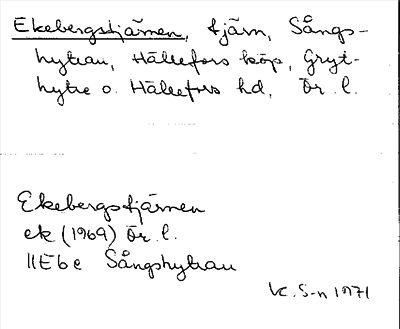 Ekebergstjärnen, tjärn, Sångs-
hyttan, Hällefors köp, Gryt-
hytte o. Hällefors hd, Ör. l.
Ekebergstjärnen
ek (1969) Ör. l.
11E6e Sångshyttan
K. S-n 1971